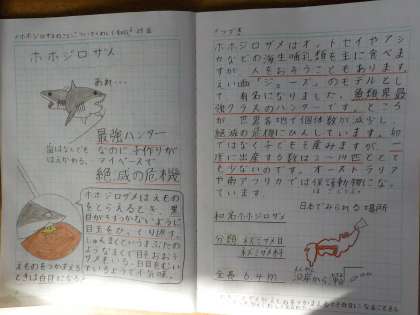 ホホジロザメ
あれ…
最強ハンター
歯はなんども
はえかわる。
なのに子作りが
マイペースで
絶滅の危機
ホホジロザメはえもの
をとらえるとき、黒
目がきずつかないように
目玉をひっくり返す。
しゅんまくというまぶたの
ようなまくで目をおおう
サメもいる。白目をむい
ているようで不気味。
えものをつかまえる
ときは白目になる!
つづき
ホホジロザメはオットセイやアシ
カなどの海生哺乳類も主に食べま
すが、人をおそうこともあります。
えい画「ジョーズ」のモデルとし
て有名になりました。魚類界最
強クラスのハンターです。ところ
が世界各地で個体数が減少し、
絶滅の危機にひんしています。卵
ではなく子どもを産みますが、一
度に出産する数は2〜14匹ととて
も少ないのです。オーストラリア
や南アフリカでは保護動物になっ
ています。
日本でみられる場所
和名ホホジロザメ
分類 ネズミザメ目
ネズミザメ科
全長 6.4m
沿岸から